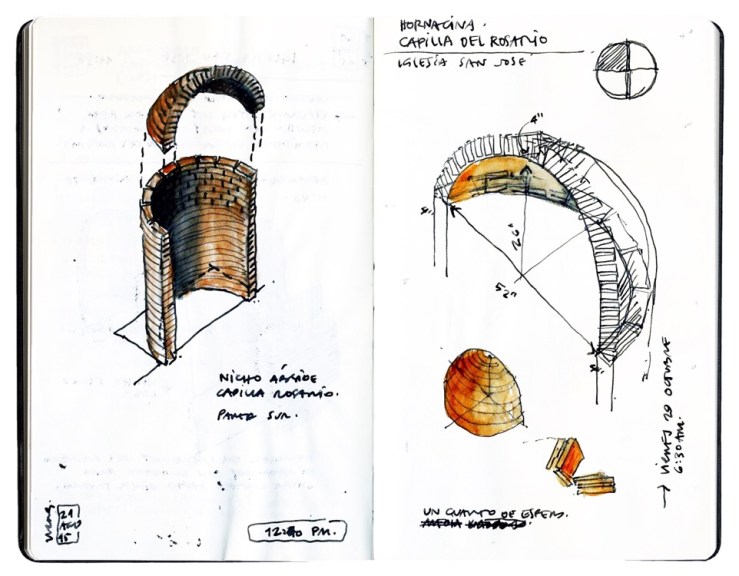 NICHO ÁBSIDE
CAPILLA ROSARIO.
PARED SUR.
21
AGO
15
12:30 PM.
HORNACINA.
CAPILLA DEL ROSARIO
IGLESIA SAN JOSÉ
4"
8"
26"
52"
8"
UN CUARTO DE ESFERA.
MEDIA
→ VIERNES 28 OCTUBRE
6:30 AM.